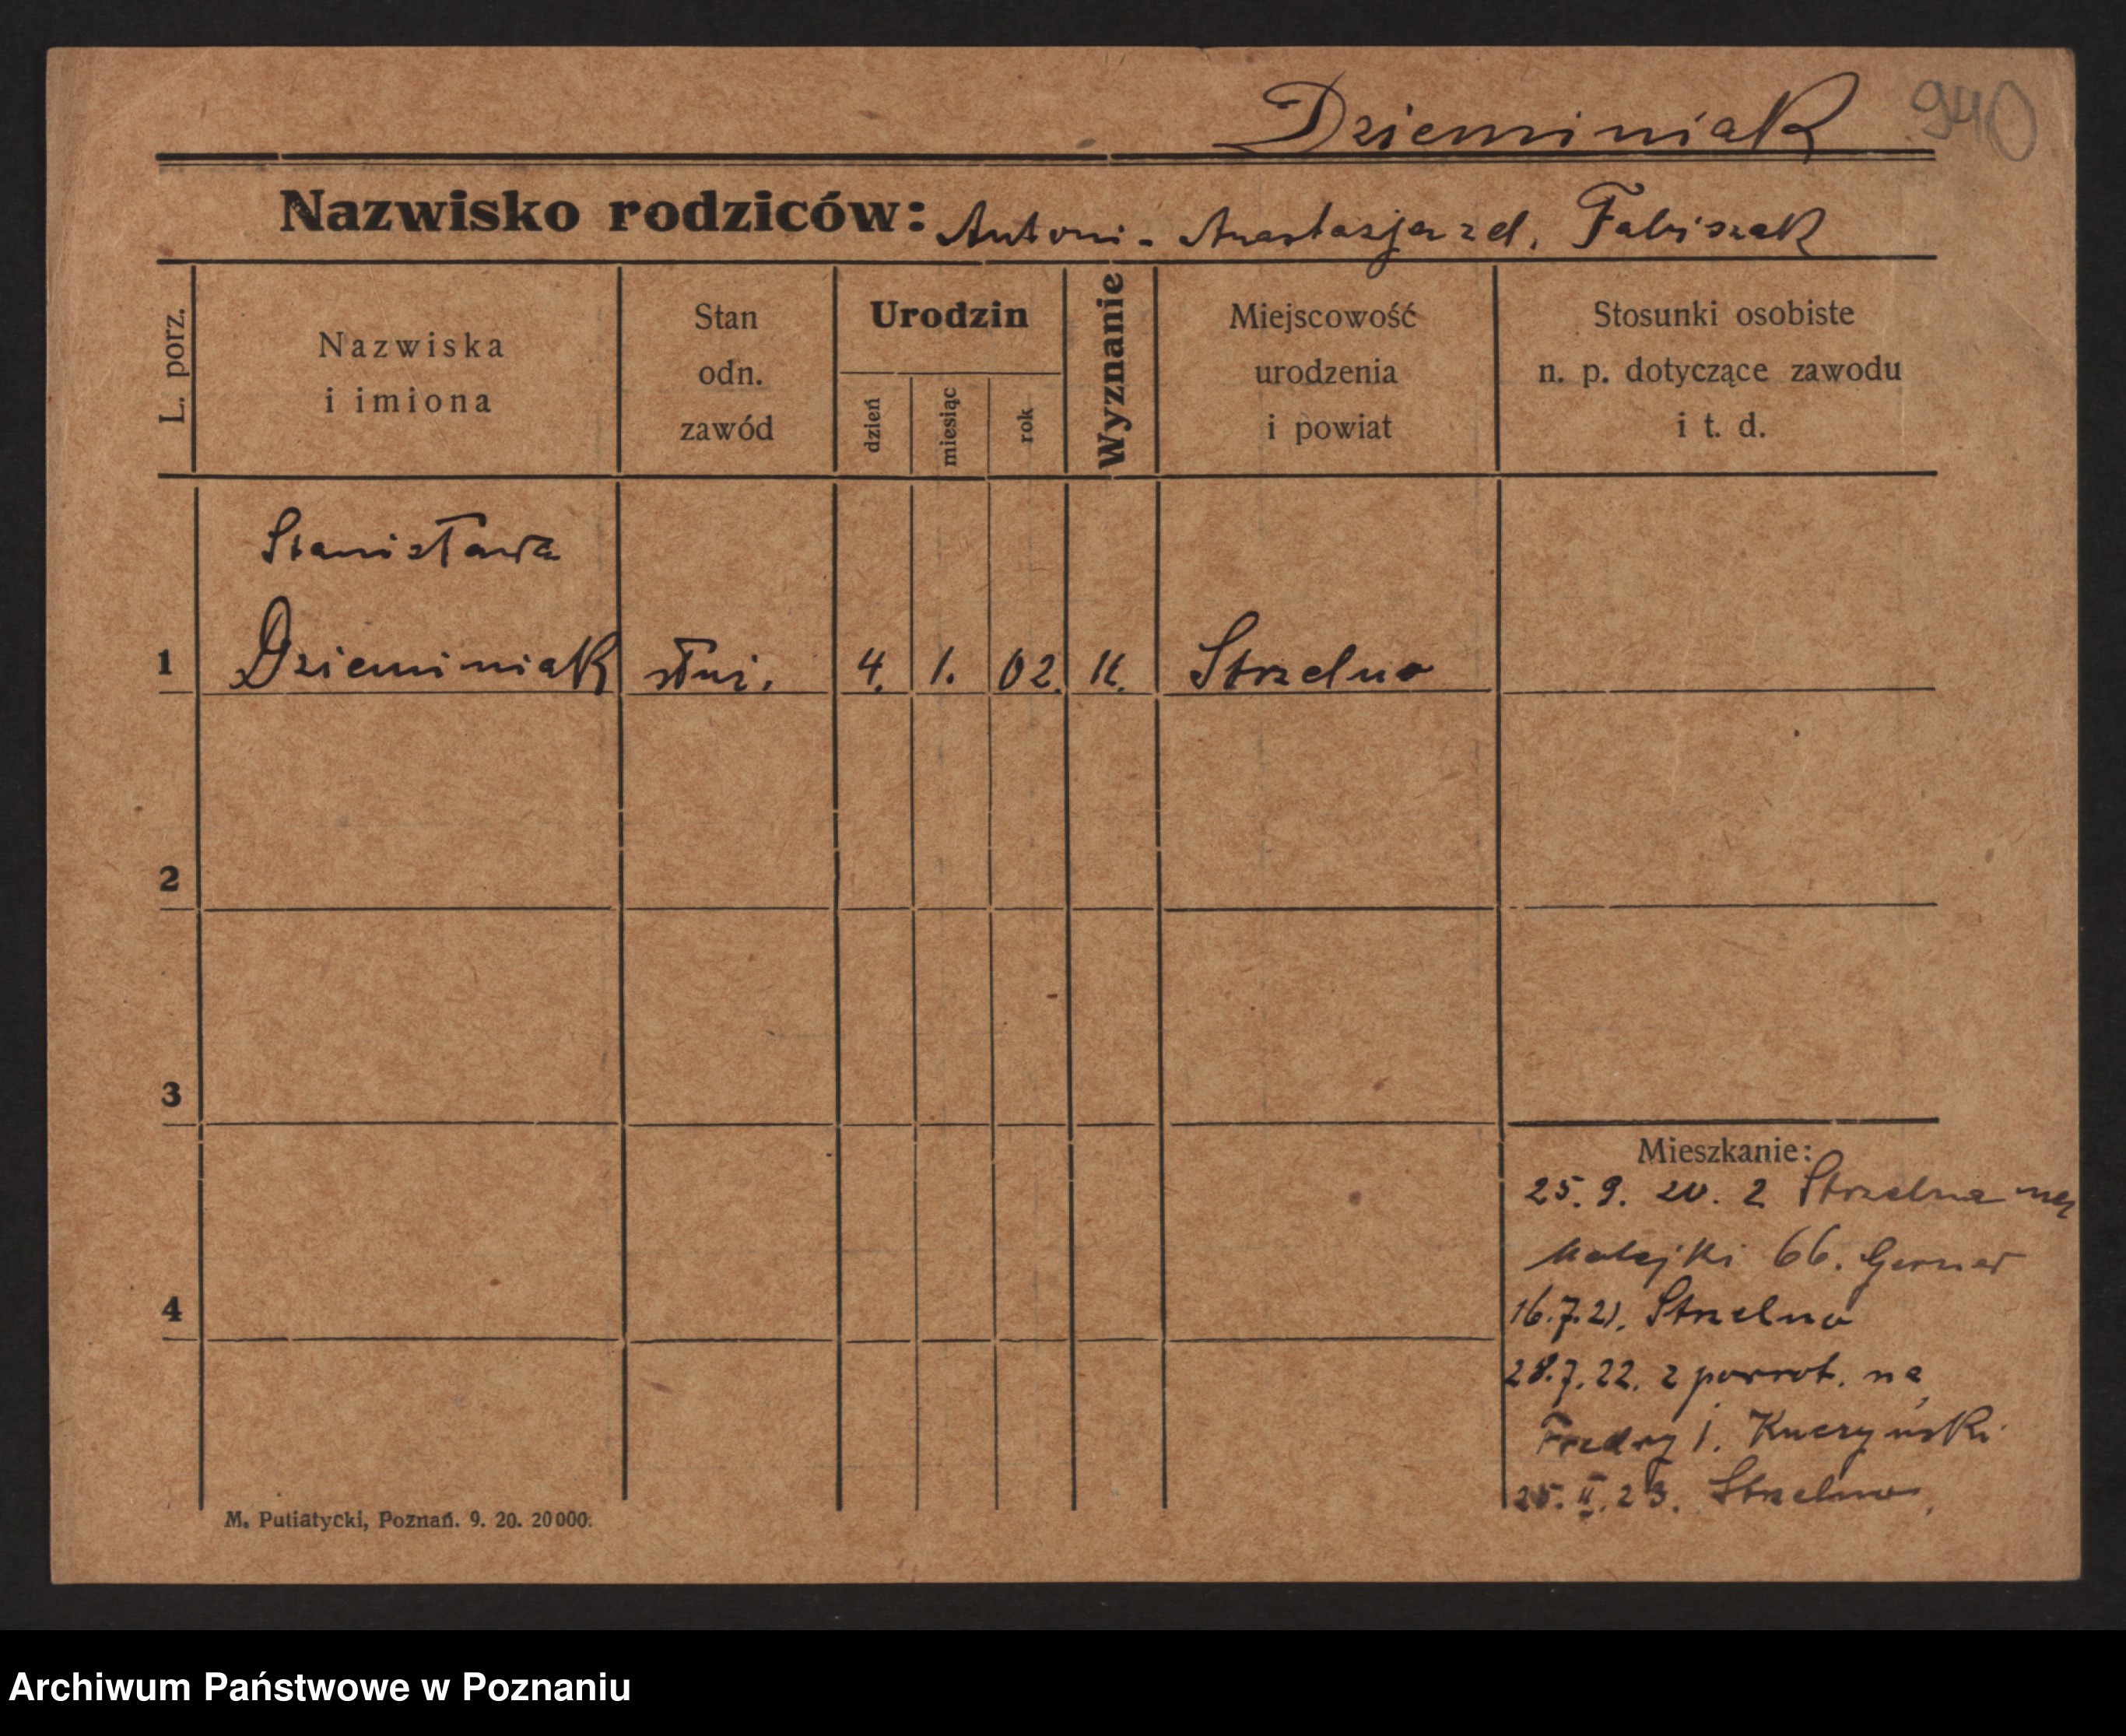 Dzieminiak 940
Nazwisko rodziców: Antoni - Anastasja zd. Fabiszak
L. porz.
Nazwiska
i imiona
Stan
odn.
zawód
Urodzin
dzień
miesiąc
rok
Wyznanie
Miejscowość
urodzenia
i powiat
Stosunki osobiste
n. p. dotyczące zawodu
i t. d.
Stanisława
1 Dzieminiak służ. 4. 1. 02. K. Strzelno
2
3
4
Mieszkanie:
25. 9. 20. z Strzelna na
Matejki 66.
16.7.21. Strzelno
28.7.22. z powrot. na
Fredry 1. Kuczyński
25. II. 23. Strzelno
M. Putiatycki, Poznań. 9. 20. 20000.
Archiwum Państwowe w Poznaniu